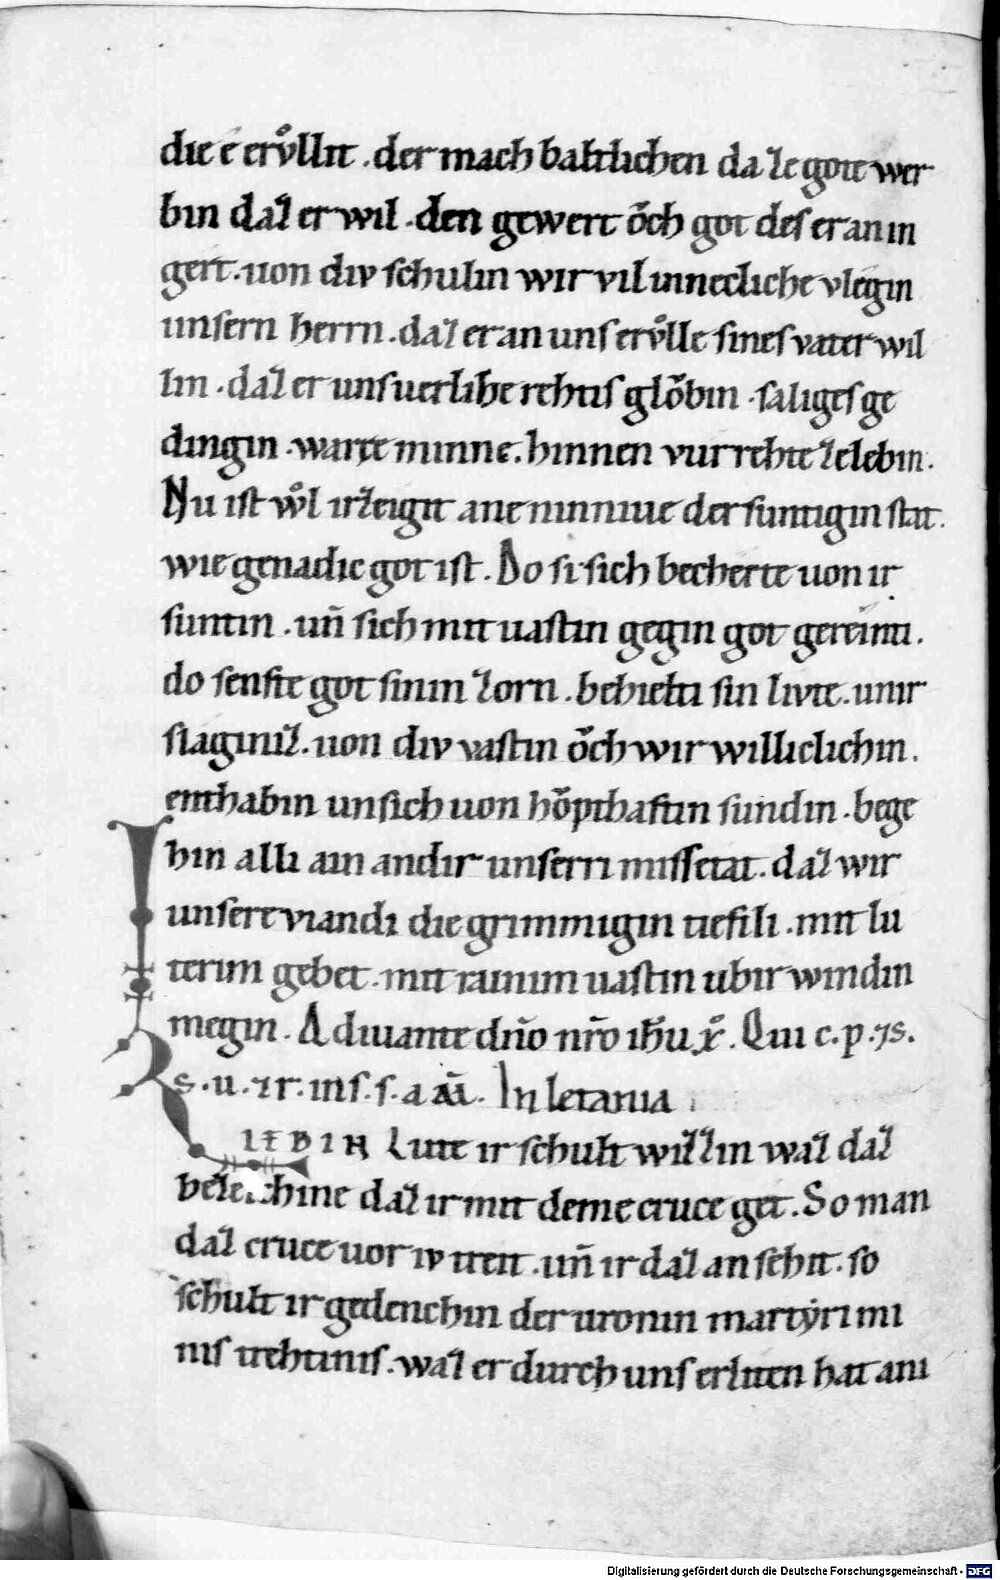 die e ervͦllit . der mach baltlichen daz ze gote wer
bin daz er wil . den gewert oͮch got des er an in
gert . uon div schulin wir vil innecliche vlegin
unsern herrn . daz er an uns ervͦlle sines vater wil
lin . daz er uns uerlihe rehtis gloͮbin . saliges ge
dingin . ware minne . hinnen vur rehte ze lebin .
Nu ist woͮl irzeigit ane niniuue der suntigin stat .
wie genadic got ist . Do si sich becherte uon ir
suntin . un̄ sich mit uastin gegin got gereinti .
do senfte got sinin zorn . behielti sin livte . unir
slaginiz . uon div vastin oͮch wir williclichin .
enthabin unsich uon hoͮpthaftin sundin . bege
hin alli ain andir unserri missetat . daz wir
unsere viandi die grimmigin tiefili . mit lu
terim gebet . mit rainim uastin ubir windin
megin . Adiuuante dn̄o nr̄o ih̄u xͦ . Qui c . p . ⁊ s .
s . u . ⁊ r . in s . s . a am̄ . In letania
LIEBIN Lute ir schult wizzin waz daz
bezeichine daz ir mit deme cruce get . So man
daz cruce uor iv treit . un̄ ir daz an sehit . so
schult ir gedenchin der uronin martyri mi
nis trehtinis . waz er durch uns erliten hat ani
Digitalisierung gefördert durch die Deutsche Forschungsgemeinschaft - DFG